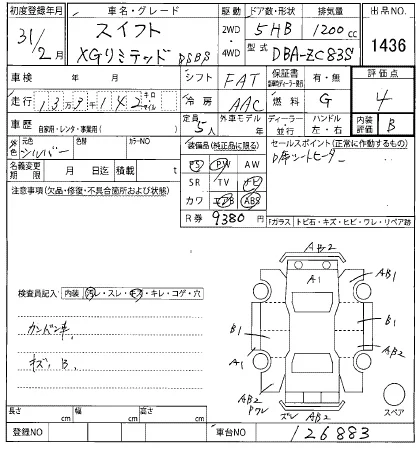 初度登録年月 車名・グレード 駆動 ドア数・形状 排気量 出品NO.
31/2月 スイフト 2WD・4WD 5HB 1200cc 1436
XGリミテッド DSBS 型式 DBA-ZC83S
車検 年 月 シフト FAT 保証書 有・無 評価点
走行 13万9千142 キロ マイル 冷房 AAC 燃料 G 4
車歴 自家用・レンタ・事業用( ) 定員 5人 外車モデル 年 ディーラー・並行 ハンドル 左・右 内装評価 B
色 元色 シルバー 色替 カラーNO 装備品(純正品に限る) セールスポイント(正常に作動するもの)
PS PW AW D席シートヒーター
名義変更期限 月 日迄 積載 t SR TV ナビ
注意事項(欠品・修復・不具合箇所および状態) カワ エアB ABS
R券 9380円 「ガラス トビ石・キズ・ヒビ・ワレ・リペア跡
AB2
A1 AB1
検査員記入 内装 汚レ・スレ・キズ・キレ・コゲ・穴
カンドン車 B1 B1
キズ、B A1 AB2
長さ cm 幅 cm 高さ cm AB2 Pワレ ズレ AB2 スペア
登録NO 車台NO 126883